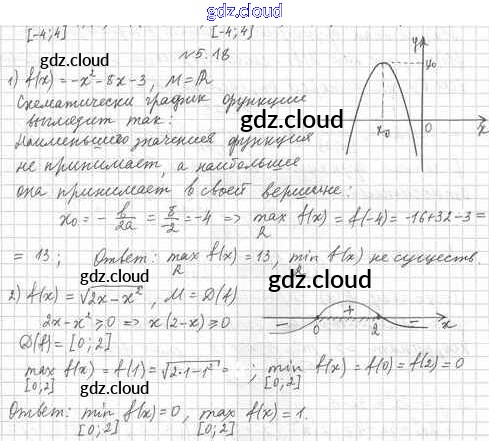 gdz.cloud
[-4;4] [-4;4]
gdz.cloud
№5.18
1) f(x) = -x² - 8x - 3, M = ℝ
Схематически график функции
выглядит так:
Наименьшего значения функция
не принимает, а наибольшее
она принимает в своей вершине:
y
y₀
x₀ 0 x
gdz.cloud
gdz.cloud
x₀ = - b/2a = 8/-2 = -4 => max f(x) = f(-4) = -16+32-3 =
R
= 13; Ответ: max f(x) = 13, min f(x) не существ.
R
gdz.cloud
2) f(x) = √2x-x², M = D(f)
2x - x² ≥ 0 => x(2-x) ≥ 0
D(f) = [0;2]
− + −
0 2 x
max f(x) = f(1) = √2·1-1² = ; min f(x) = f(0) = f(2) = 0
[0;2] [0;2]
gdz.cloud
gdz.cloud
Ответ: min f(x) = 0, max f(x) = 1.
[0;2] [0;2]